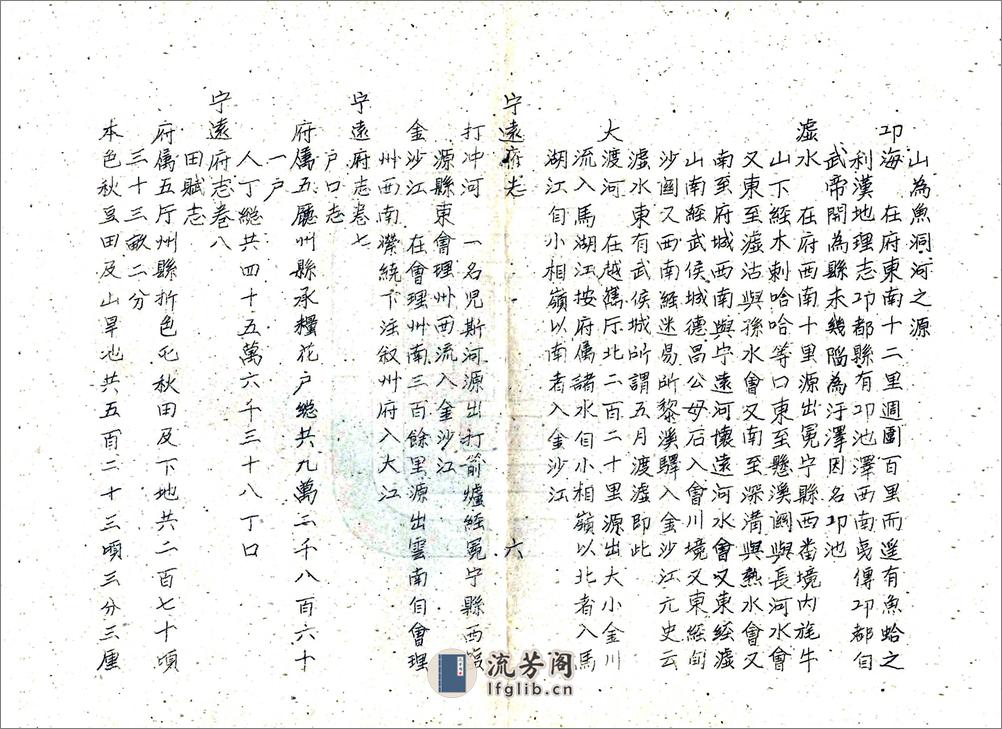 山為魚洞河之源
卭海　在府東南十二里週圍百里而遥有魚蛤之
利漢地理志卭都縣有卭池澤西南夷傳卭都自
武帝開為縣未幾陷為汙澤因名卭池
瀘水　在府西南十里源出冕宁縣西畨境内旄牛
山下經木剌哈哈等口東至懸溪關與長河水會
又東至瀘沽與孫水會又南至深溝與熱水會又
南至府城西南與宁遠河懷遠河水會又東經瀘
山南經武侯城德昌公母石入會川境又東經自
沙國又西南經迷易所黎溪驛入金沙江元史云
瀘水東有武侯城所謂五月渡瀘即此
大渡河　在越嶲厅北二百二十里源出大小金川
流入馬湖江按府属諸水自小相嶺以北者入馬
湖江自小相嶺以南者入金沙江
宁遠府志　六
打冲河　一名児斯河源出打箭爐經冕宁縣西
源縣東會理州西流入金沙江
金沙江　在會理州南三百餘里源出雲南自會理
州西南濼統下注叙州府入大江
宁遠府志卷七
户口志
府属五廳州縣承糧花户縂共九萬二千八百六十
一户
人丁縂共四十五萬六千三十八丁口
宁遠府志卷八
田賦志
府属五厅州縣折色屯秋田及下地共二百七十頃
三十三畝二分
本色秋豆田及山旱地共五百二十三頃三分三厘
流芳阁
lfglib.cn